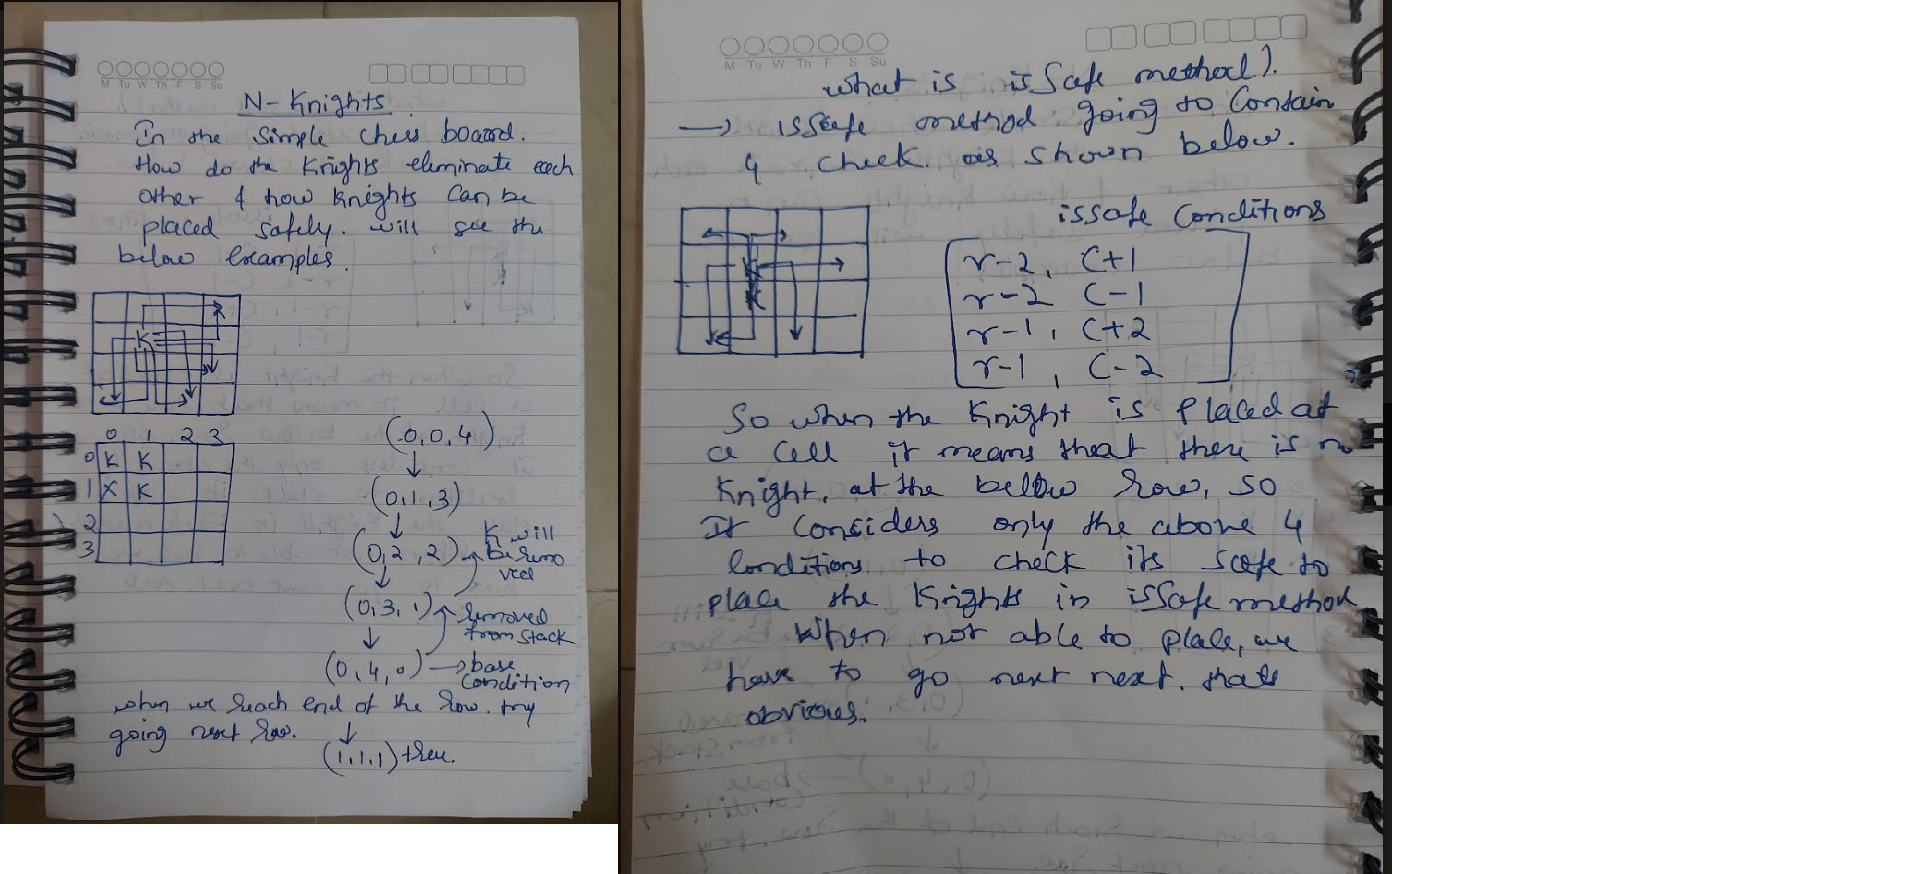 M Tu W Th F S Su
N-Knights
In the Simple Chess board.
How do the Knights eliminate each
other & how Knights Can be
placed safely. will see the
below Examples.
K
0 1 2 3
0 K K
1 X K
2
3
(0,0,4)
(0,1,3)
(0,2,2)
K will
be Remo
ved
(0,3,1)
Removed
from stack
(0,4,0) → base
Condition
when we Reach end of the Row. try
going next Row.
(1,1,1) then.
M Tu W Th F S Su
what is isSafe method).
→ isSafe method going to Contain
4 check. as shown below.
issafe Conditions
K
r-2, C+1
r-2 C-1
r-1, C+2
r-1, C-2
So when the Knight is Placed at
a Cell it means that there is no
Knight. at the bellow Row, SO
It Considers only the above 4
Conditions to check its safe to
place the Knights in isSafe method
When not able to place, we
have to go next next. thats
obvious.